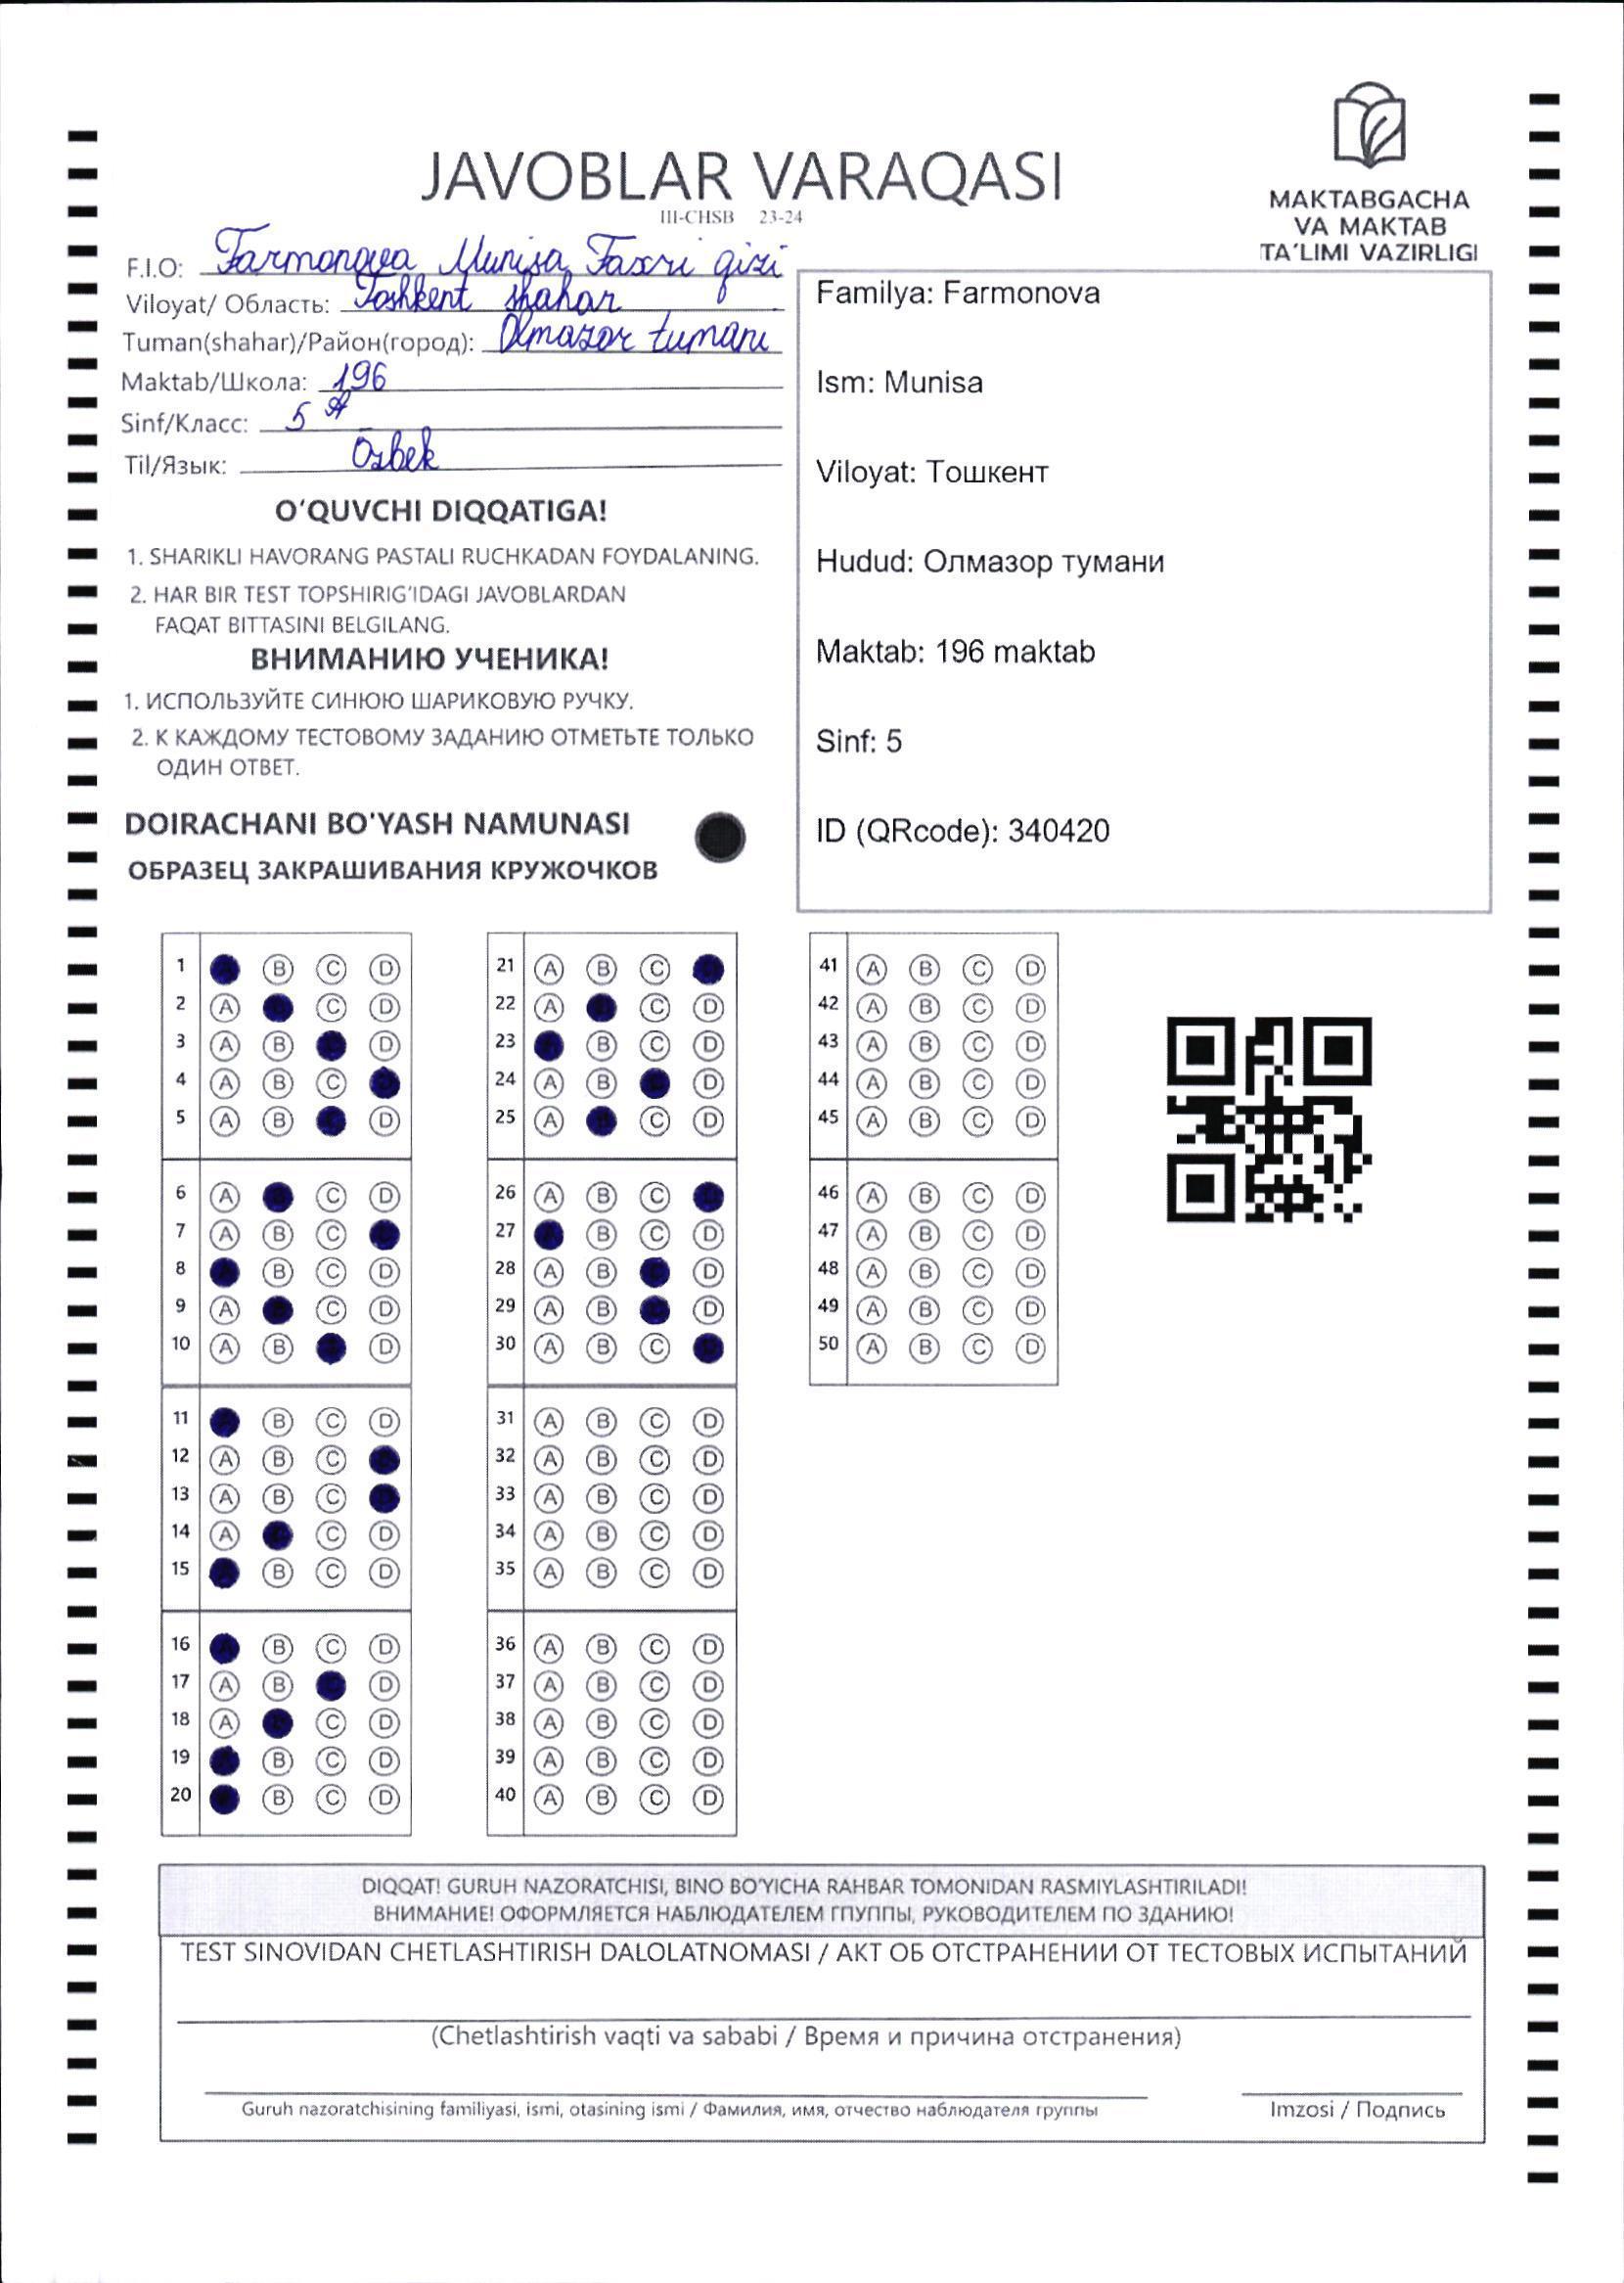 JAVOBLAR VARAQASI
III-CHSB 23-24
MAKTABGACHA
VA MAKTAB
TA'LIMI VAZIRLIGI
F.I.O: Farmonova Munisa Faxri qizi
Viloyat/ Область: Toshkent shahar
Tuman(shahar)/Район(город): Olmazor tumani
Maktab/Школа: 196
Sinf/Класс: 5 A
Til/Язык: Ozbek
O'QUVCHI DIQQATIGA!
1. SHARIKLI HAVORANG PASTALI RUCHKADAN FOYDALANING.
2. HAR BIR TEST TOPSHIRIG'IDAGI JAVOBLARDAN
FAQAT BITTASINI BELGILANG.
ВНИМАНИЮ УЧЕНИКА!
1. ИСПОЛЬЗУЙТЕ СИНЮЮ ШАРИКОВУЮ РУЧКУ.
2. К КАЖДОМУ ТЕСТОВОМУ ЗАДАНИЮ ОТМЕТЬТЕ ТОЛЬКО
ОДИН ОТВЕТ.
DOIRACHANI BO'YASH NAMUNASI
ОБРАЗЕЦ ЗАКРАШИВАНИЯ КРУЖОЧКОВ
Familya: Farmonova
Ism: Munisa
Viloyat: Тошкент
Hudud: Олмазор тумани
Maktab: 196 maktab
Sinf: 5
ID (QRcode): 340420
1 B C D
2 A C D
3 A B D
4 A B C
5 A B D
6 A C D
7 A B C
8 B C D
9 A C D
10 A B D
11 B C D
12 A B C
13 A B C
14 A C D
15 B C D
16 B C D
17 A B D
18 A C D
19 B C D
20 B C D
21 A B C
22 A C D
23 B C D
24 A B D
25 A C D
26 A B C
27 B C D
28 A B D
29 A B D
30 A B C
31 A B C D
32 A B C D
33 A B C D
34 A B C D
35 A B C D
36 A B C D
37 A B C D
38 A B C D
39 A B C D
40 A B C D
41 A B C D
42 A B C D
43 A B C D
44 A B C D
45 A B C D
46 A B C D
47 A B C D
48 A B C D
49 A B C D
50 A B C D
DIQQAT! GURUH NAZORATCHISI, BINO BO'YICHA RAHBAR TOMONIDAN RASMIYLASHTIRILADI!
ВНИМАНИЕ! ОФОРМЛЯЕТСЯ НАБЛЮДАТЕЛЕМ ГПУППЫ, РУКОВОДИТЕЛЕМ ПО ЗДАНИЮ!
TEST SINOVIDAN CHETLASHTIRISH DALOLATNOMASI / АКТ ОБ ОТСТРАНЕНИИ ОТ ТЕСТОВЫХ ИСПЫТАНИЙ
(Chetlashtirish vaqti va sababi / Время и причина отстранения)
Guruh nazoratchisining familiyasi, ismi, otasining ismi / Фамилия, имя, отчество наблюдателя группы
Imzosi / Подпись